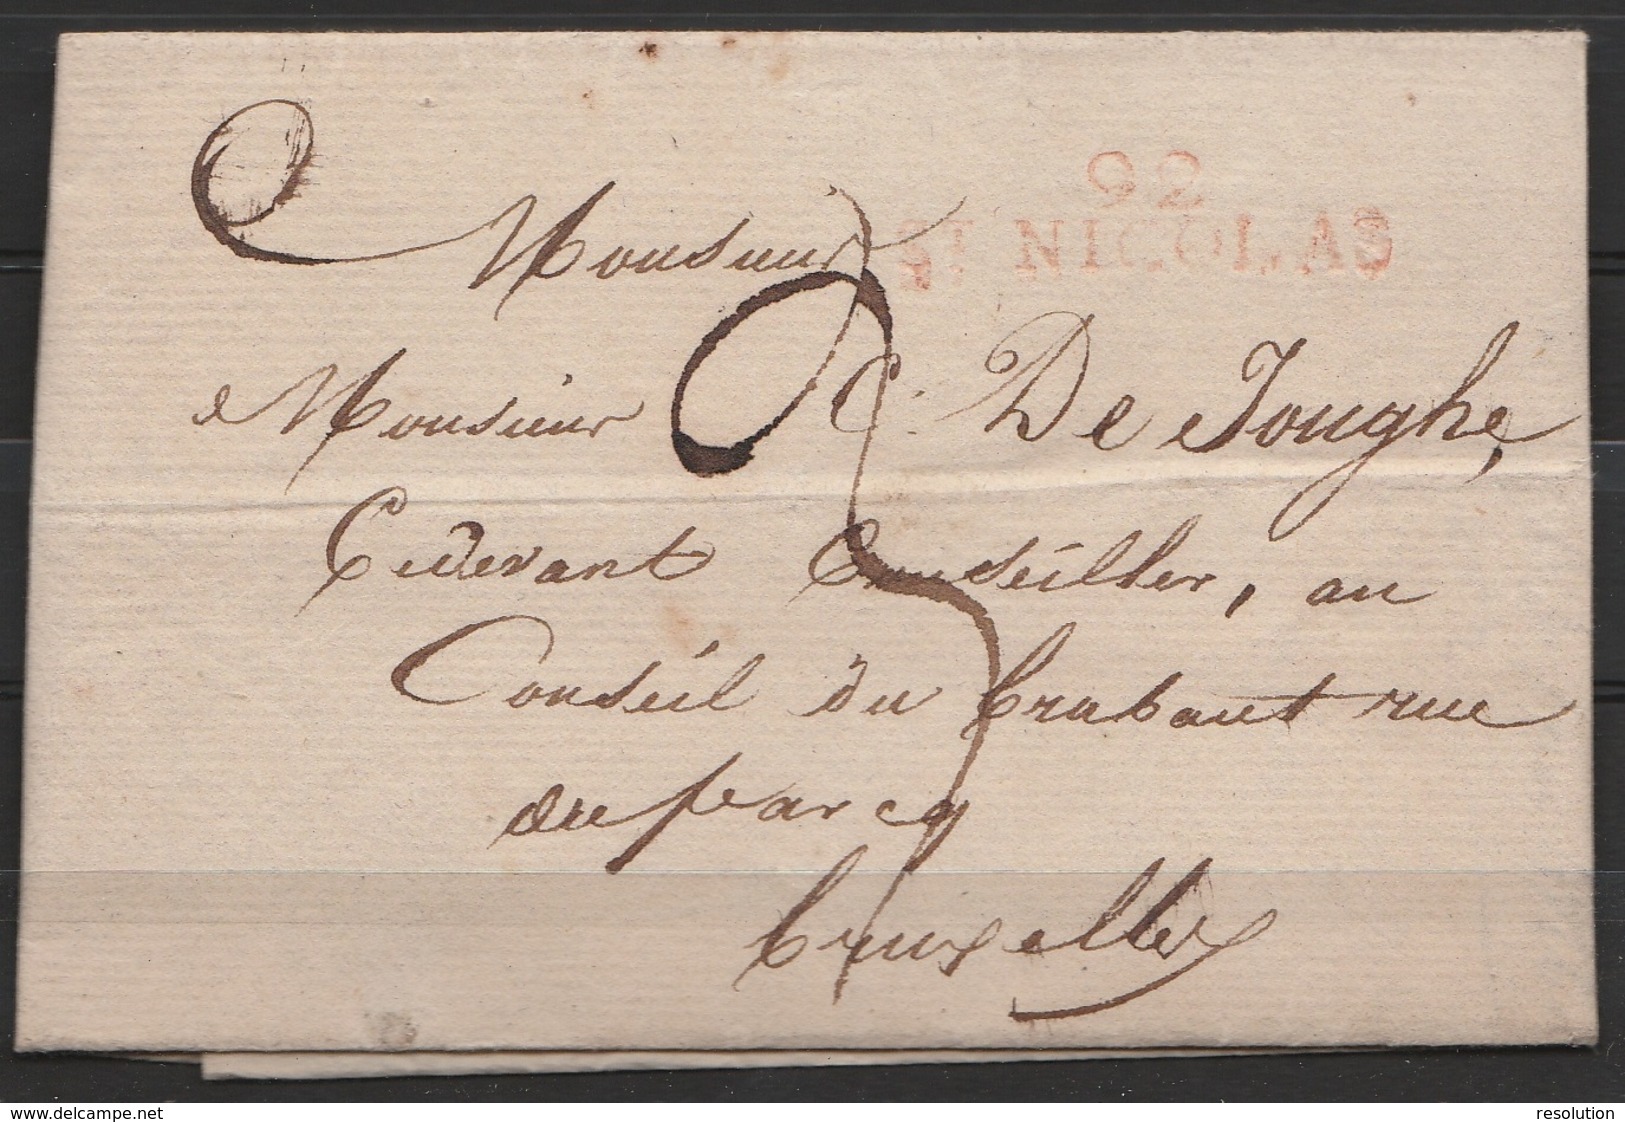 92
ST NICOLAS
Monsieur
Monsieur C. De Jonghe,
Cidevant Conséiller, au
Conséil du brabant rue
du parcq
bruxelles
3
www.delcampe.net
resolution